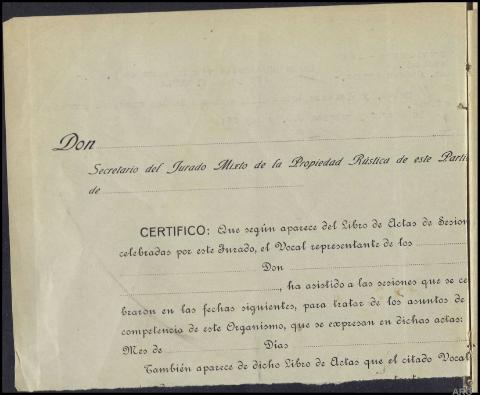 Don
Secretario del Jurado Mixto de la Propiedad Rústica de este Parti
de
CERTIFICO: Que según aparece del Libro de Actas de Sesion
celebradas por este Jurado, el Vocal representante de los
Don
, ha asistido a las sesiones que se ce
braron en las fechas siguientes, para tratar de los asuntos de
competencia de este Organismo, que se expresan en dichas actas:
Mes de Días
También aparece de dicho Libro de Actas que el citado Vocal